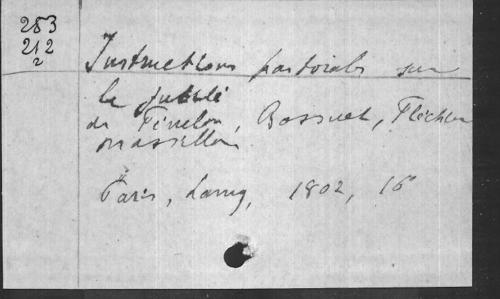 253
212
2
Instructions pastorales sur
le jubilé
de Fénelon, Bossuet, Fléchier
Massillon
Paris, Lamy, 1802, 16°